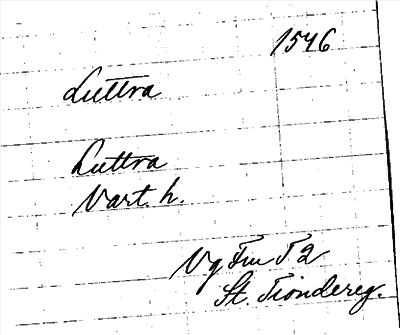 1546
Luttra
Luttra
Vart. h.
Vg Fru T 2
St. Tiondereg.